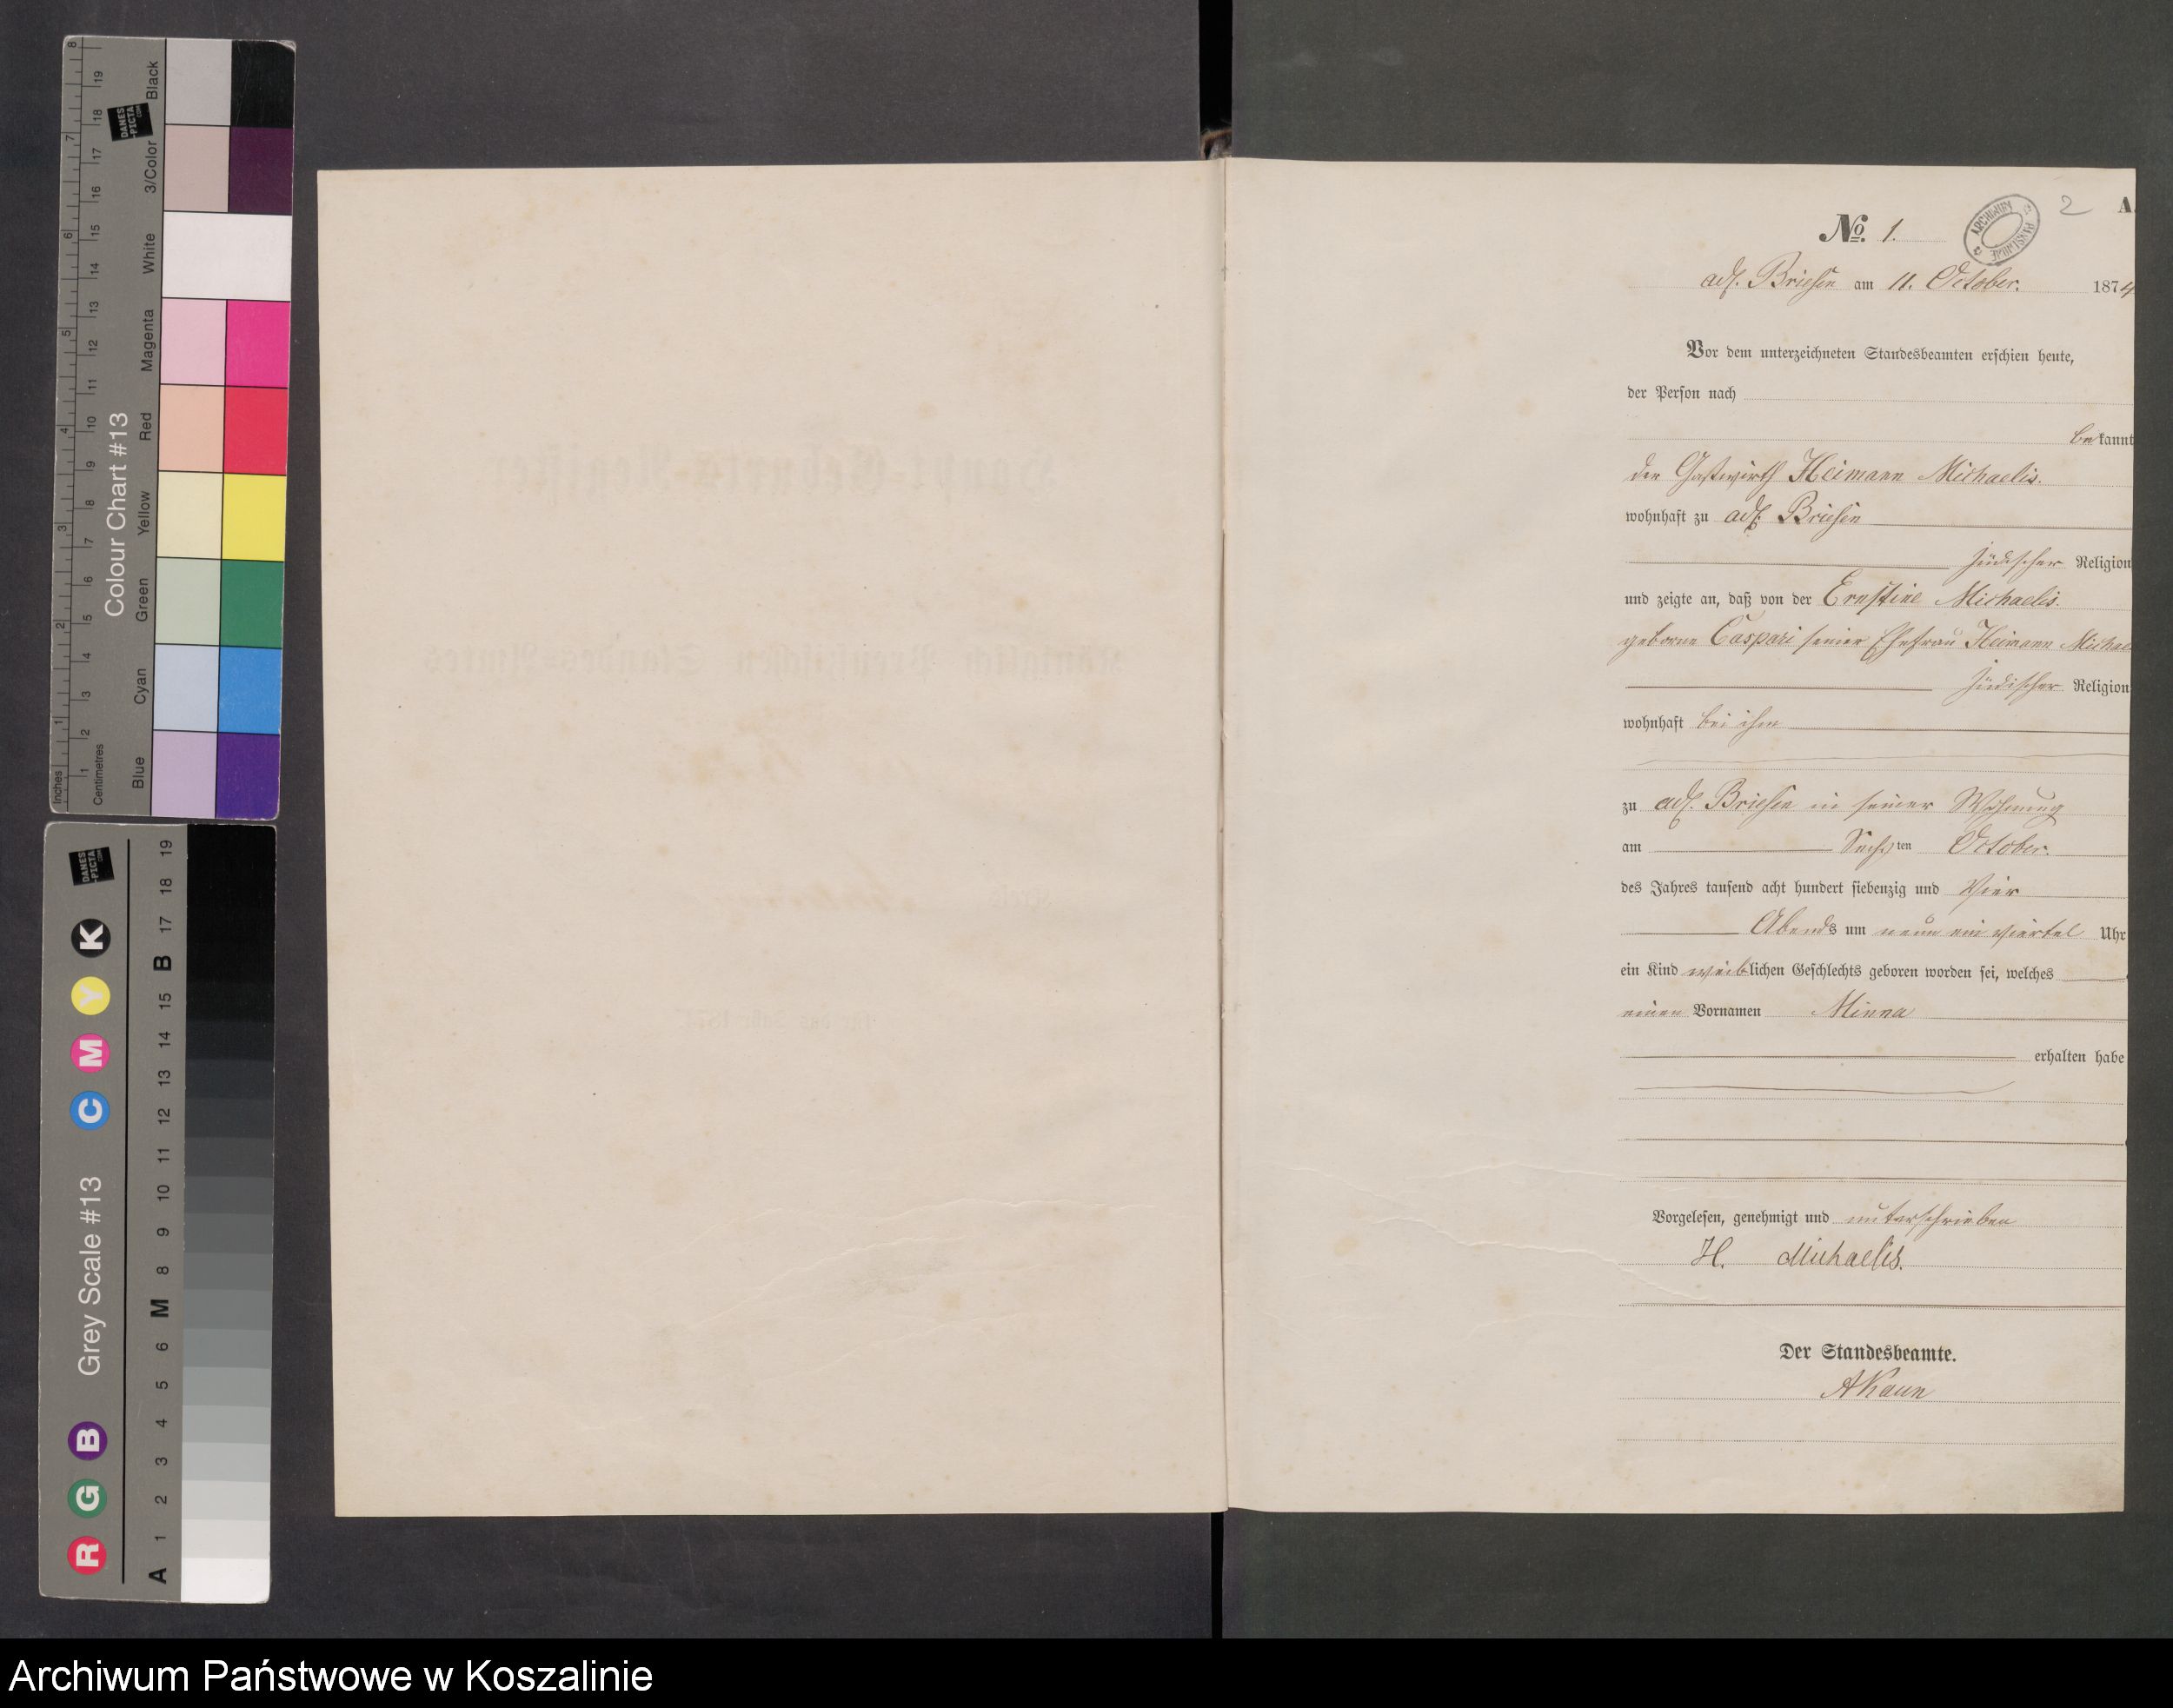 8
7
6
5
4
3
2
1
Inches
19
18
17
16
15
14
13
12
11
10
9
8
7
6
5
4
3
2
1
Centimetres
DANES
-PICTA
.COM
Colour Chart #13
Black
3/Color
White
Magenta
Red
Yellow
Green
Cyan
Blue
DANES
-PICTA
.COM
Grey Scale #13
K
Y
M
C
B
G
R
19
18
17
B
15
14
13
12
11
10
9
8
M
6
5
4
3
2
1
A
A.
2
ARCHIWUM
No. 1.
adl. Briesen am 11. October. 1874
Vor dem unterzeichneten Standesbeamten erschien heute,
der Person nach
bekannt
der Gastwirth Heimann Michaelis.
wohnhaft zu adl. Briesen
jüdischer Religion
und zeigte an, daß von der Ernstine Michaelis.
geborne Caspari seiner Ehefrau Heimann Michael
jüdischer Religion
wohnhaft bei ihm
zu adl. Briesen in seiner Wohnung
am Sechsten October.
des Jahres tausend acht hundert siebenzig und Vier
Abends um neun ein viertel Uhr
ein Kind weiblichen Geschlechts geboren worden sei, welches
einen Vornamen Minna
erhalten habe
Vorgelesen, genehmigt und unterschrieben
H. Michaelis.
Der Standesbeamte.
AKaun
Archiwum Państwowe w Koszalinie